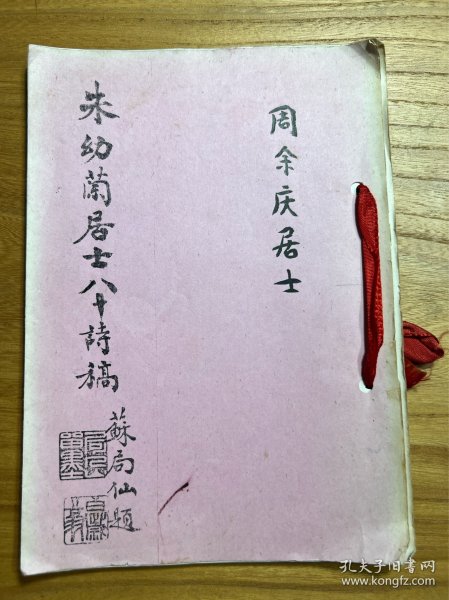 周余庆居士
朱幼蘭居士八十詩稿
蘇局仙題
孔夫子旧书网
www.kongfz.com